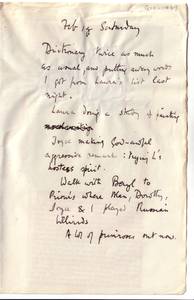 Feb 19 Saturday
Dictionary twice as much
as usual and putting away words
I got from Laura's list last
night.
Laura doing a story & finding
Joyce making God-awful
aggressive remark : trying L's
hostess spirit.
Walk with Beryl to
Prions where Alan, Dorothy,
Joyce & I played Russian
billiards
A lot of primroses out now.